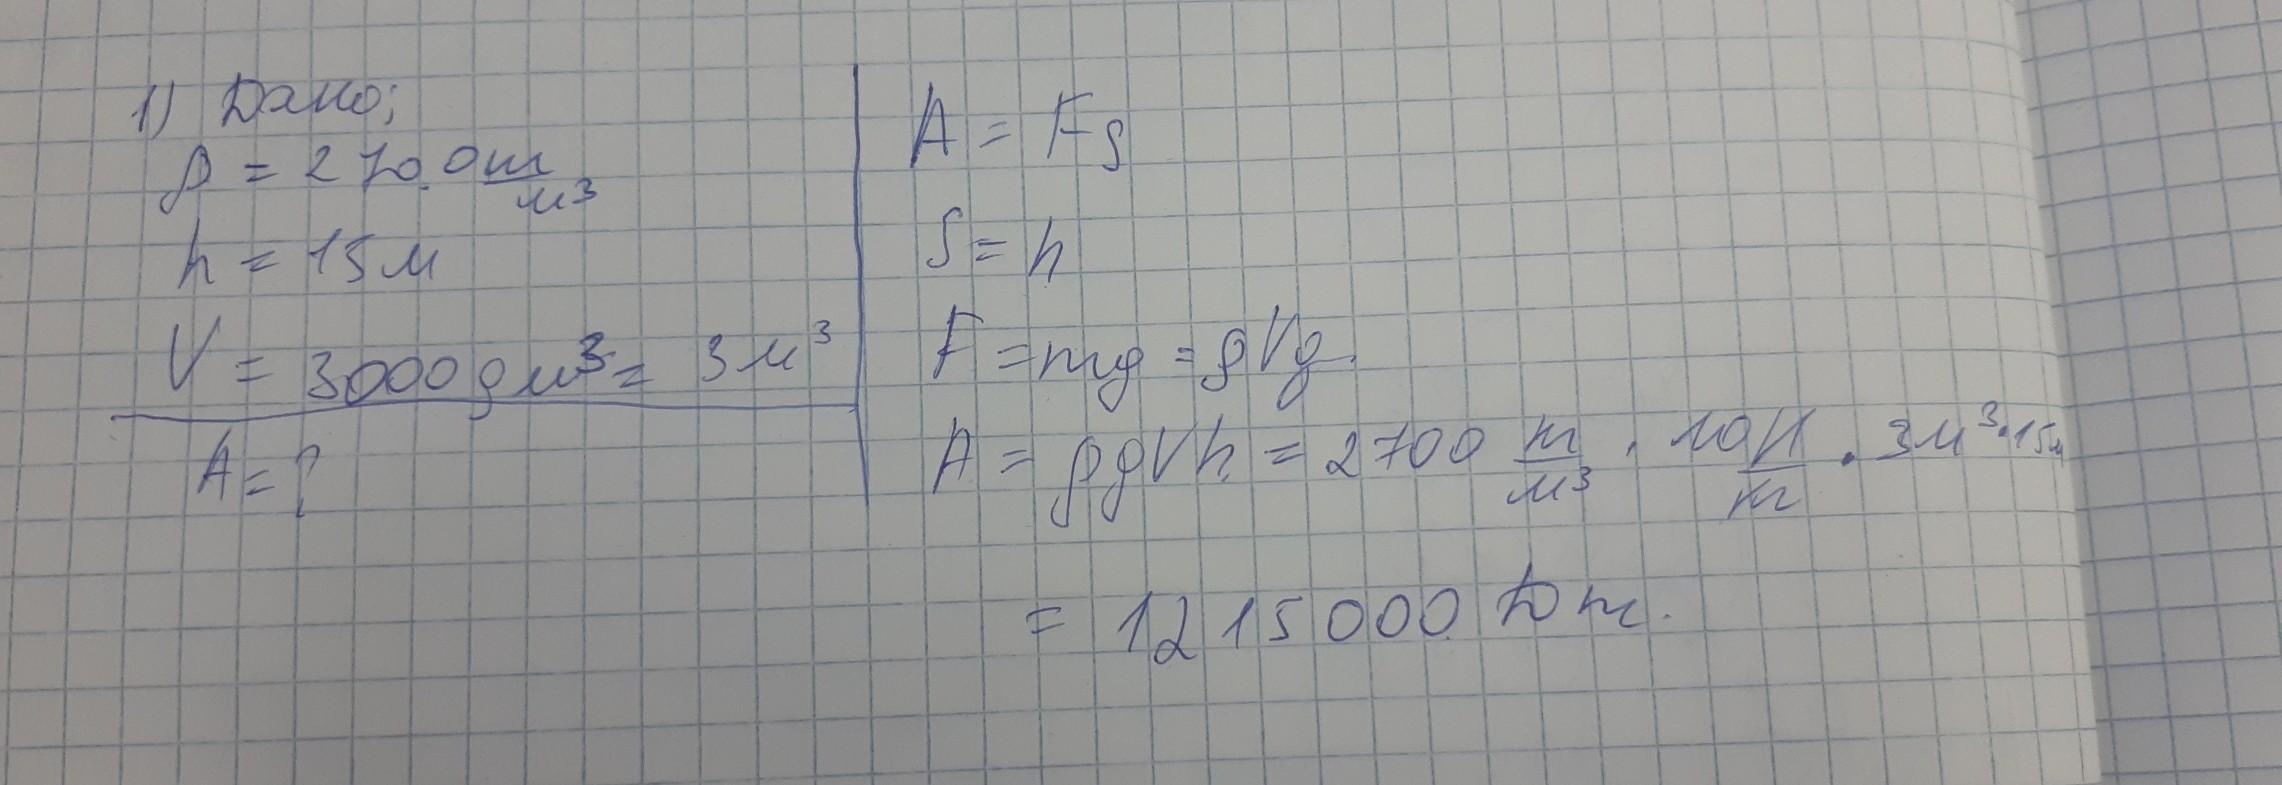 1) Дано;
ρ = 2700 кг/м³
h = 15 м
V = 3000 дм³ = 3 м³
A = ?
A = Fs
S = h
F = mg = ρVg.
A = ρgVh = 2700 кг/м³ · 10 Н/кг · 3 м³ · 15 м
= 1215000 Дж.